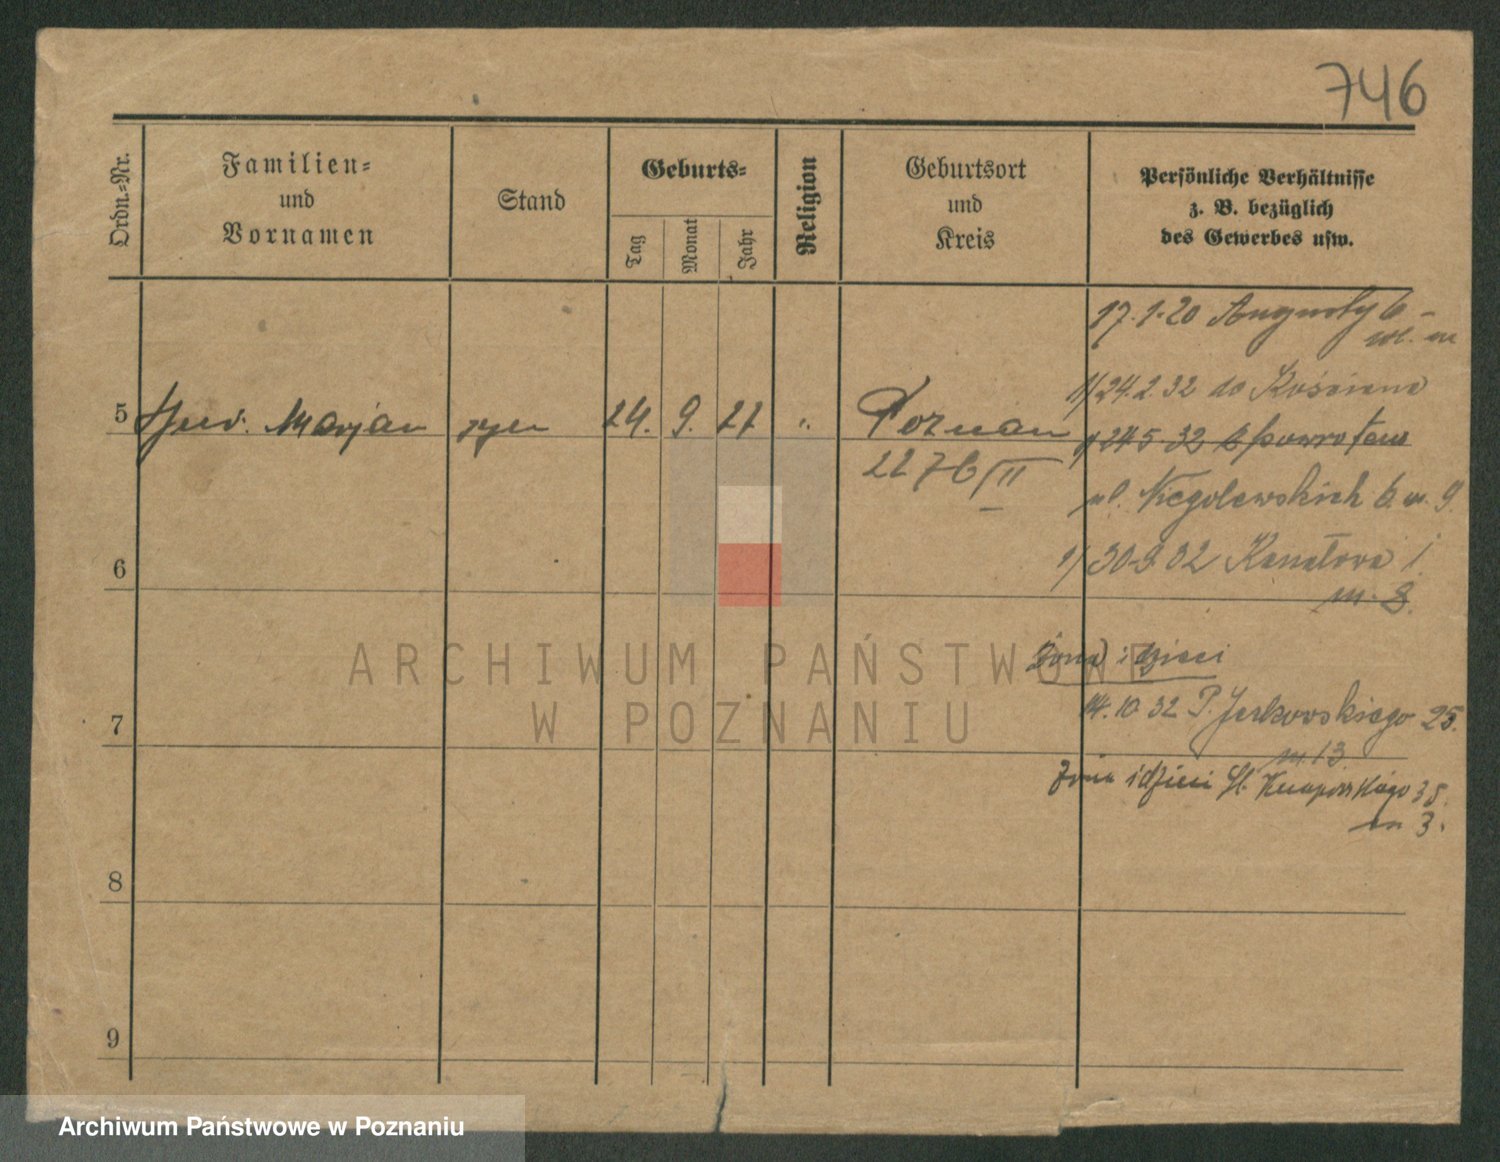 746
Ordn.-Nr.
Familien-
und
Vornamen
Stand
Geburts-
Tag
Monat
Jahr
Religion
Geburtsort
und
Kreis
Persönliche Verhältnisse
z. B. bezüglich
des Gewerbes usw.
17.1.20
1/ 24.2.32 do Kościana
5 Marjan syn 24. 9. 22 " Poznań
24 5 32 z powrotem
2276/II
ul. Niegolewskich 6. m. 9.
6
1/ 30.9.32 1
m. 8.
Żona i dzieci
7
14.10.32 P. Jackowskiego 25.
m. 13
żona i dzieci Sł. Knapowskiego 35.
m 3.
8
9
ARCHIWUM PAŃSTWOWE
W POZNANIU
Archiwum Państwowe w Poznaniu